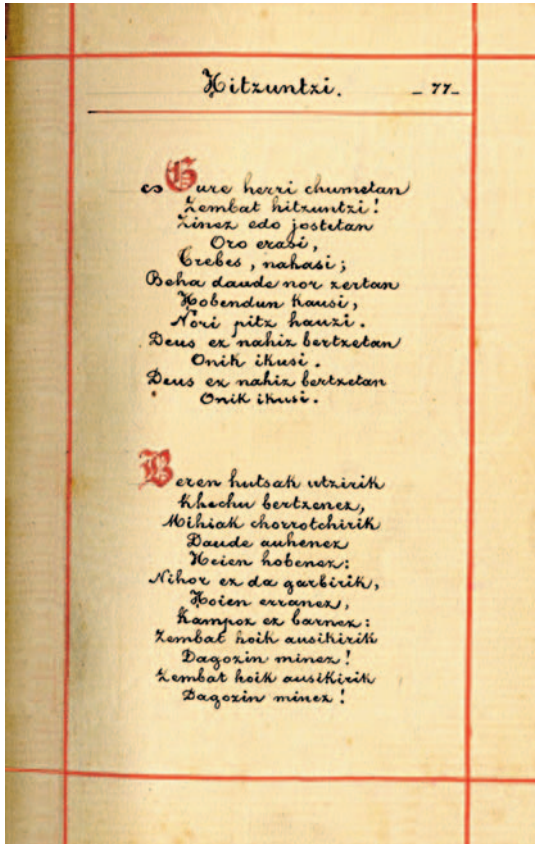 Hitzuntzi. - 77 -
Gure herri chumetan
Zembat hitzuntzi!
Zinez edo jostetan
Oro erasi,
Trebes, nahasi;
Beha daude nor zertan
Hobendun kausi,
Nori pitz hauzi.
Deus ez nahiz bertzetan
Onik ikusi.
Deus ez nahiz bertzetan
Onik ikusi.
Beren hutsak utzirik
Khechu bertzenez,
Mihiak chorrotchirik
Daude auhenez
Heien hobenez:
Nihor ez da garbirik,
Hoien erranez,
Kampoz ez barnez:
Zembat hoik ausikirik
Dagozin minez!
Zembat hoik ausikirik
Dagozin minez!